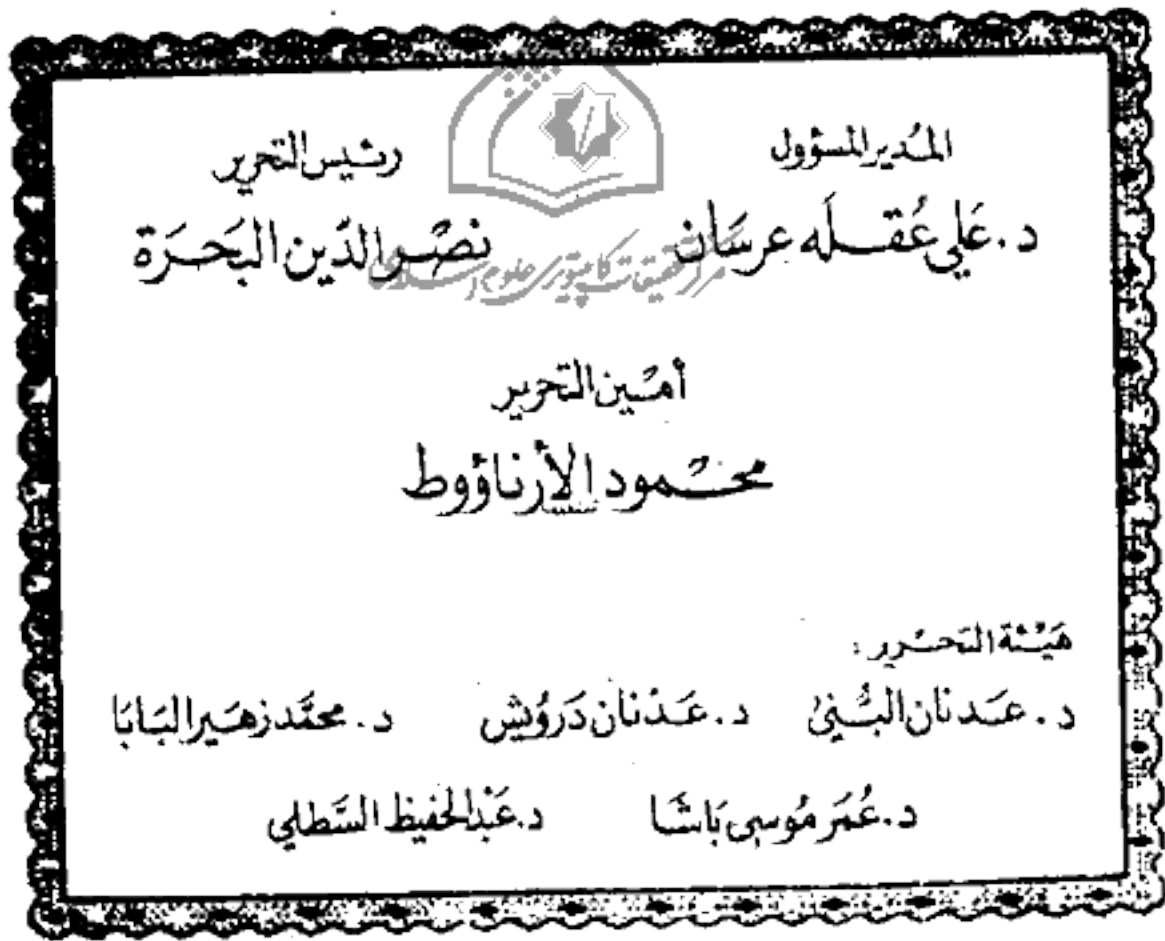 المُدير المسؤول
رئيس التحرير
د. عَلي عُقلَه عرسَان
نصْر الدّين البَحرَة
مركز تحقيقات كامپيوتری علوم اسلامی
أمْين التحرير
محمْود الأرناؤوط
هَيْئة التحْرير :
د. عَدنان البُنيْ د. عَدْنان دَروُيش د. محمَّد زهَير البَابَا
د. عُمَر مُوسى بَاشَا د. عَبْد الحَفيظ السَّطلي